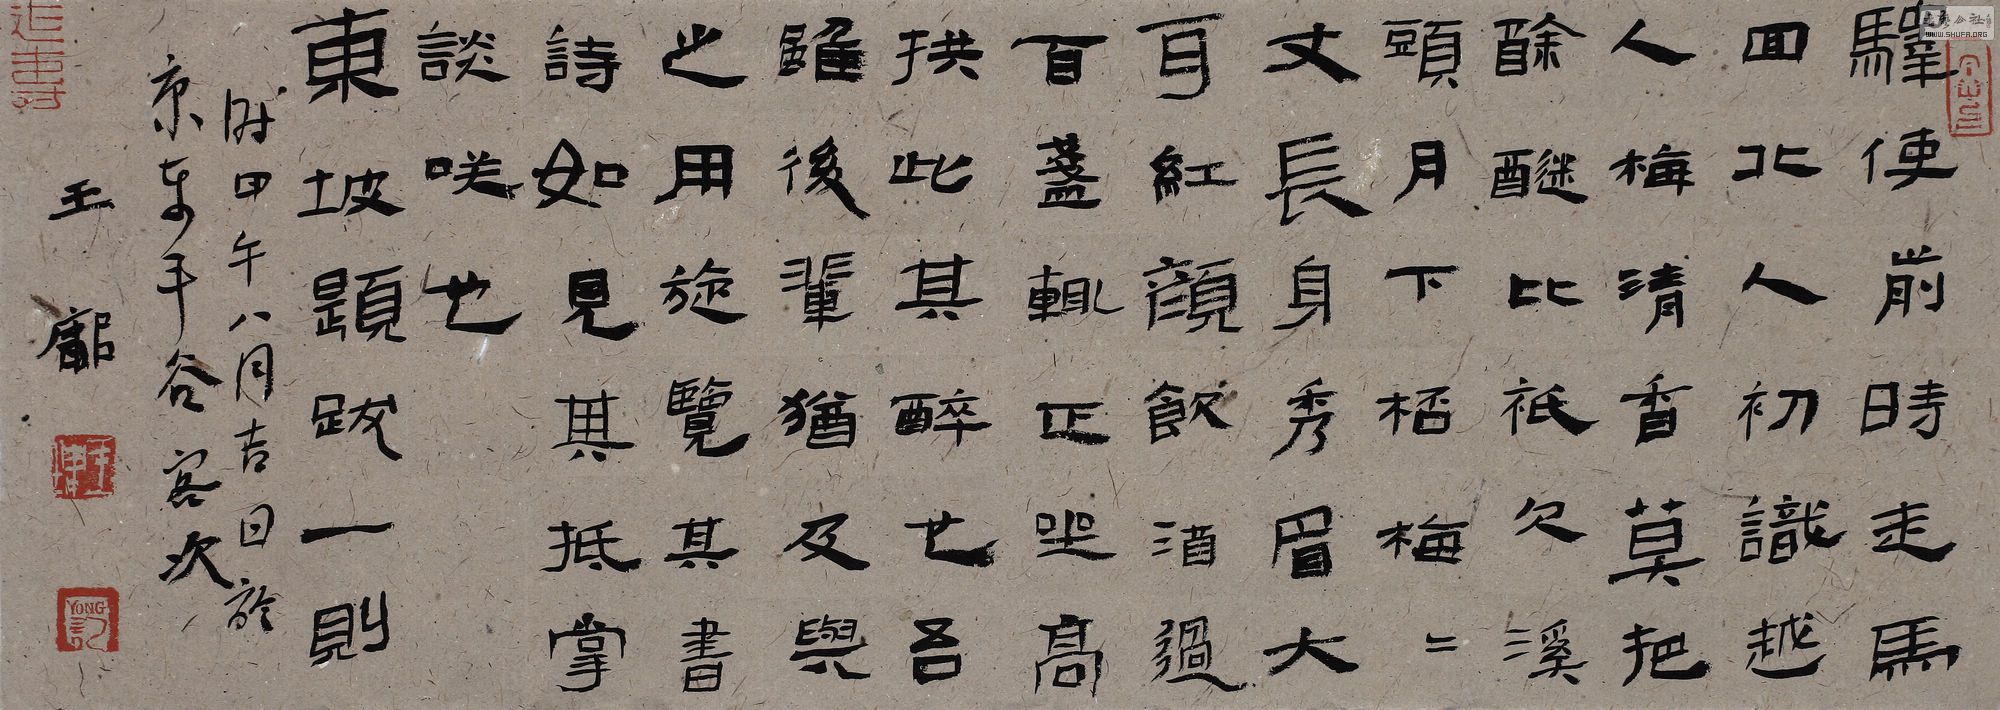 驛使前時走馬
回北人初識越
人梅清香莫把
酴醿比祇欠溪
頭月下桮梅二
丈長身秀眉大
耳紅顏飲酒過
百盞輒正坐高
拱此其醉也吾
雖後輩猶及與
之用旋覽其書
詩如見其抵掌
談咲也
東坡題跋一則
時甲午八月吉日於
京東平谷客次
王鄺
YONG記
WWW.SHUFA.ORG